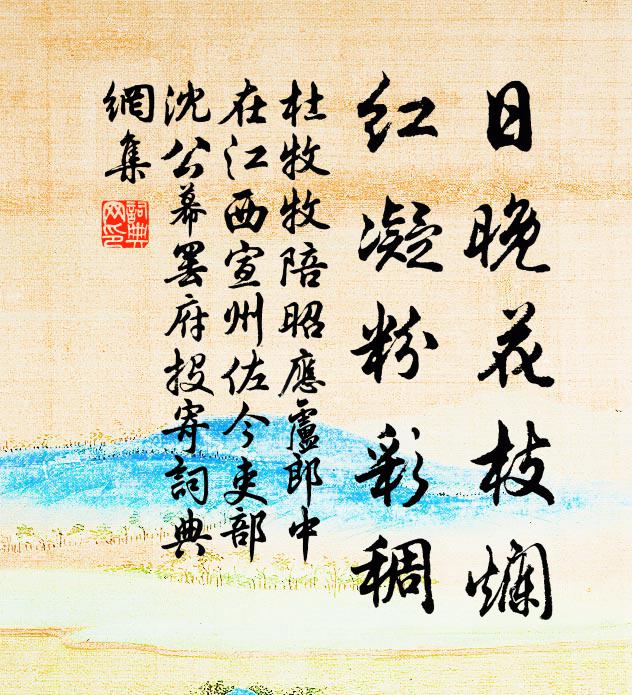 日晚花枝爛
紅凝粉彩稠
杜牧牧陪昭應盧郎中
在江西宣州佐今吏部
沈公幕罷府投寄詞典
網集
詞典
网印